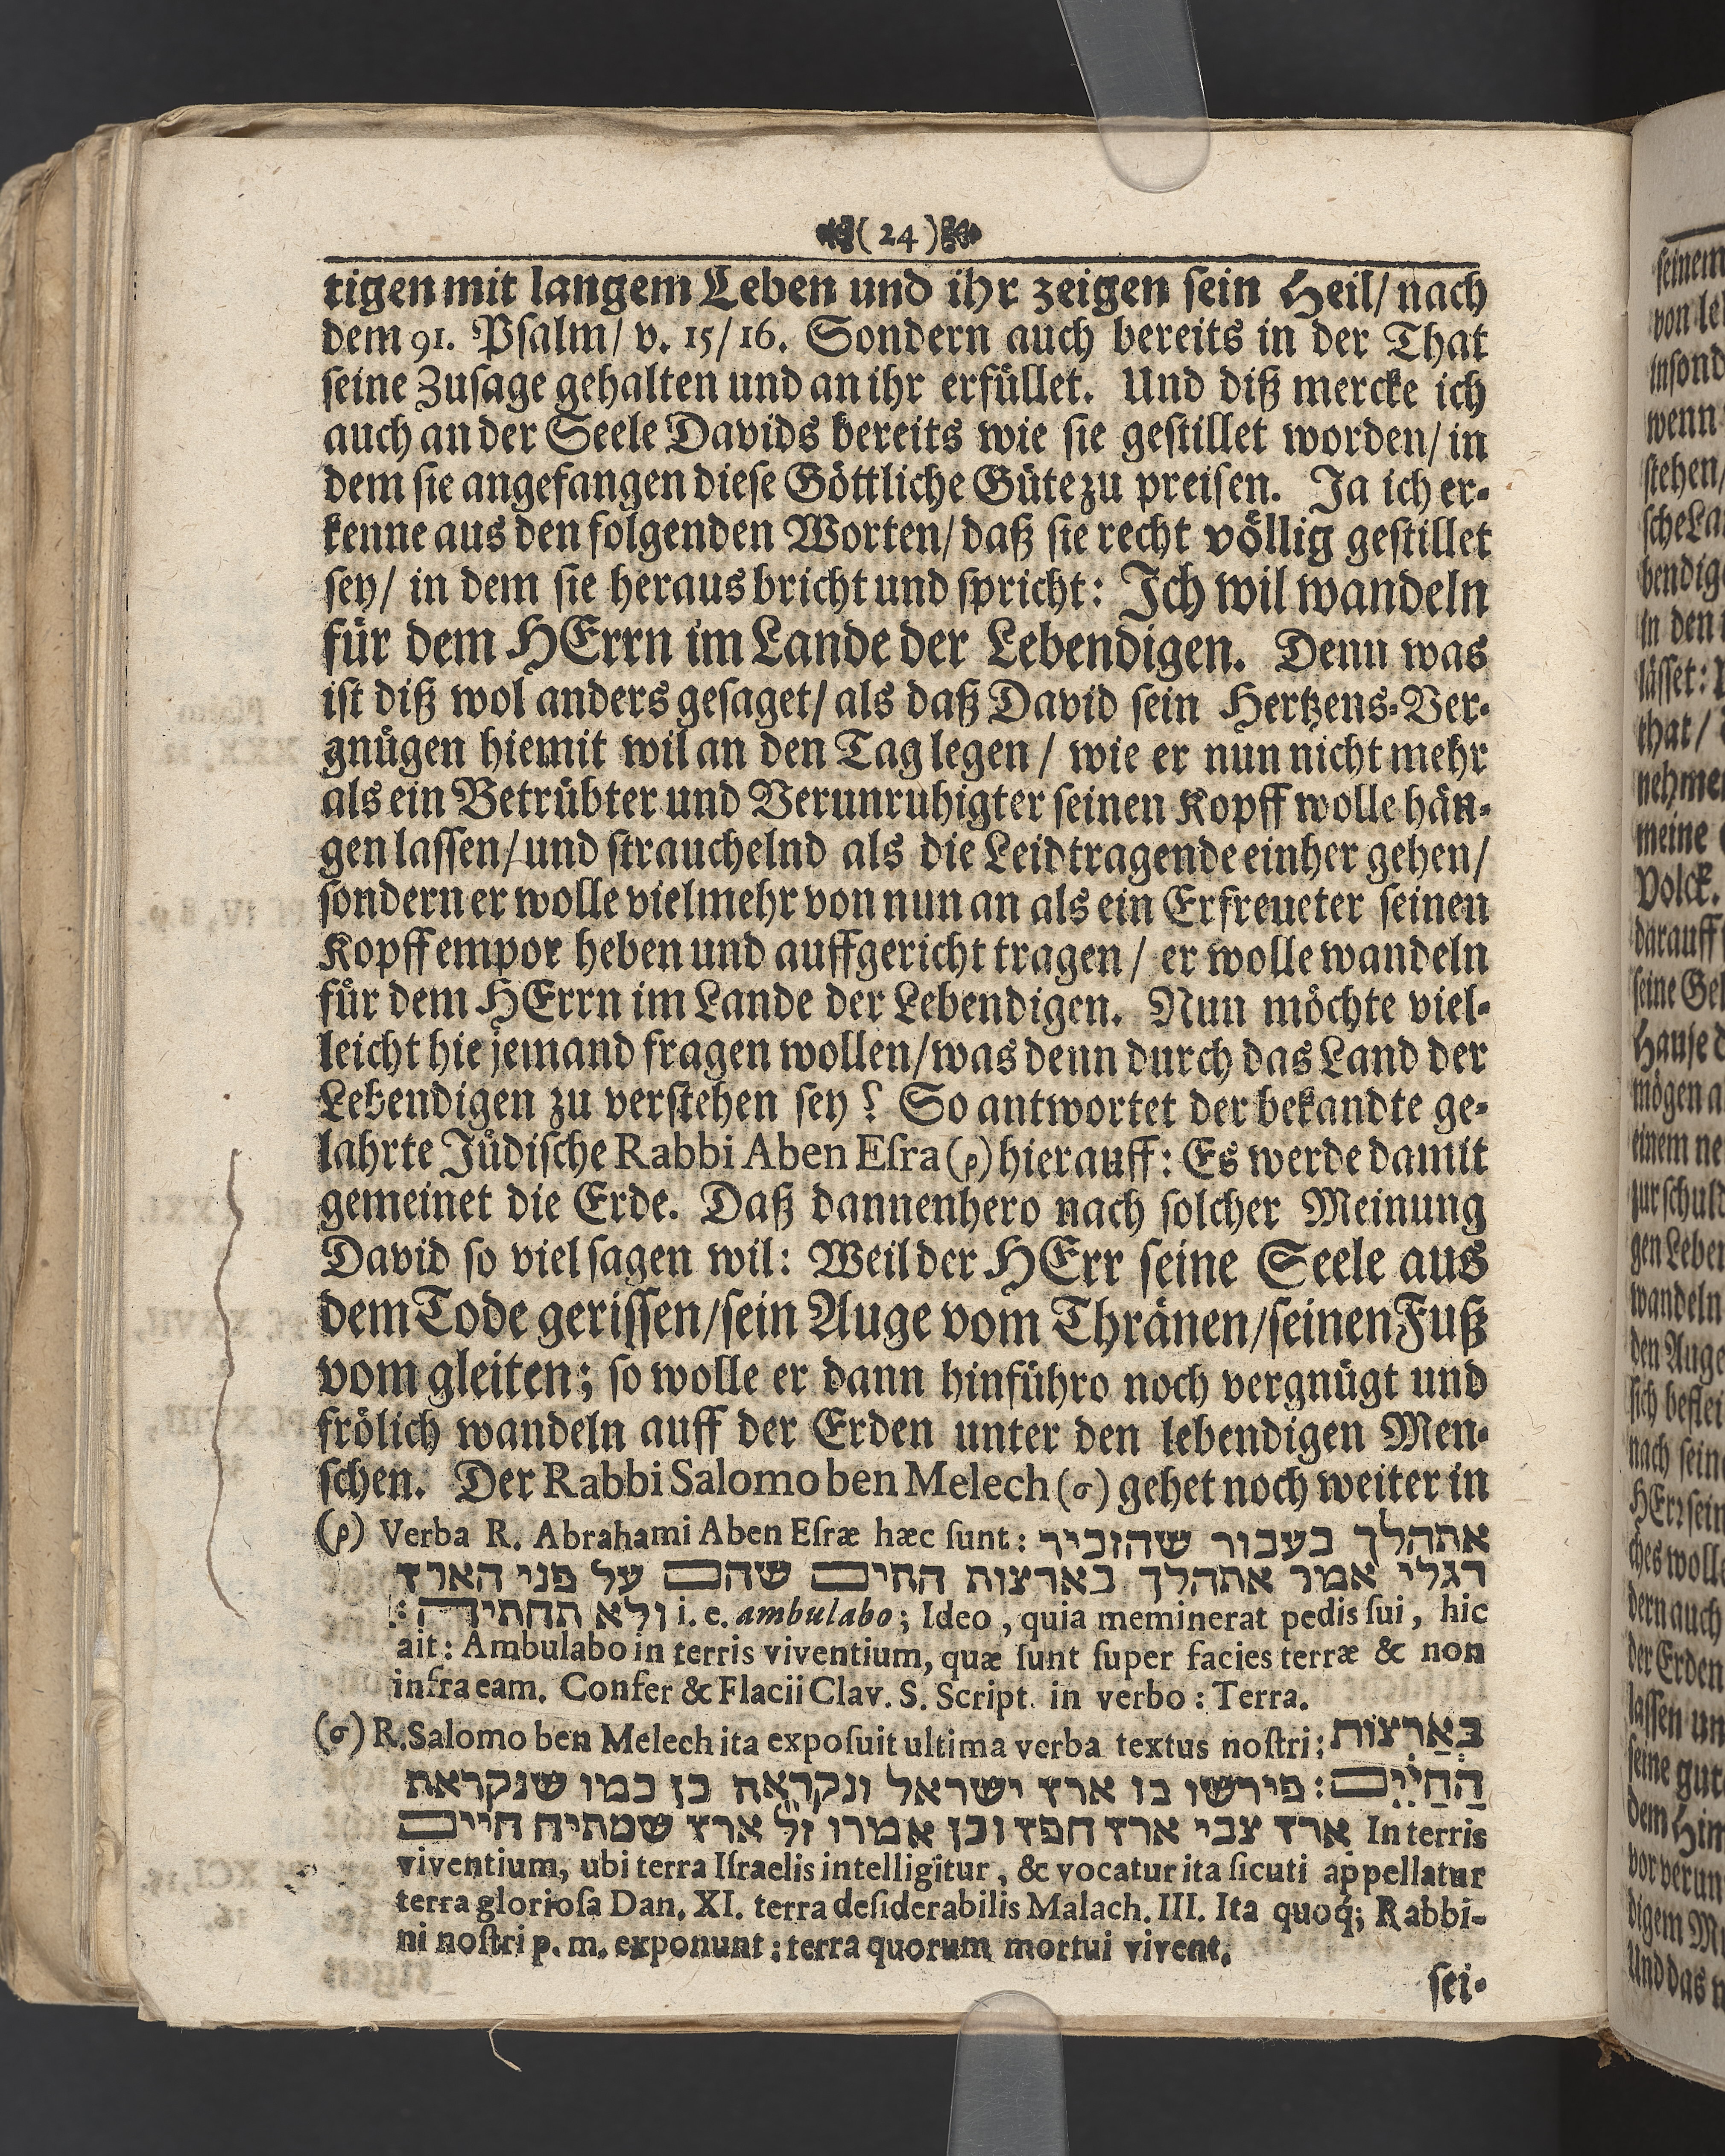 (24)
tigen mit langem Leben und ihr zeigen sein Heil/ nach
dem 91. Psalm/ v. 15/16. Sondern auch bereits in der That
seine Zusage gehalten und an ihr erfüllet. Und diß mercke ich
auch an der Seele Davids bereits wie sie gestillet worden/ in
dem sie angefangen diese Göttliche Güte zu preisen. Ja ich er-
kenne aus den folgenden Worten/ daß sie recht völlig gestillet
sey/ in dem sie heraus bricht und spricht: Ich wil wandeln
für dem HErrn im Lande der Lebendigen. Denn was
ist diß wol anders gesaget/ als daß David sein Hertzens-Ver-
gnügen hiemit wil an den Tag legen/ wie er nun nicht mehr
als ein Betrübter und Verunruhigter seinen Kopff wolle hän-
gen lassen/ und strauchelnd als die Leidtragende einher gehen/
sondern er wolle vielmehr von nun an als ein Erfreueter seinen
Kopff empor heben und auffgericht tragen/ er wolle wandeln
für dem HErrn im Lande der Lebendigen. Nun möchte viel-
leicht hie jemand fragen wollen/ was denn durch das Land der
Lebendigen zu verstehen sey? So antwortet der bekandte ge-
lahrte Jüdische Rabbi Aben Esra (ρ) hierauff: Es werde damit
gemeinet die Erde. Daß dannenhero nach solcher Meinung
David so viel sagen wil: Weil der HErr seine Seele aus
dem Tode gerissen/ sein Auge vom Thränen/ seinen Fuß
vom gleiten; so wolle er dann hinführo noch vergnügt und
frölich wandeln auff der Erden unter den lebendigen Men-
schen. Der Rabbi Salomo ben Melech (σ) gehet noch weiter in
(ρ) Verba R. Abrahami Aben Esræ hæc sunt: אתהלך בעבור שהזכיר
רגלי אמר אתהלך בארצות החיים שהם על פני הארץ
ולא תחתיה: i. e. ambulabo; Ideo, quia meminerat pedis sui, hic
ait: Ambulabo in terris viventium, quæ sunt super facies terræ & non
infra eam. Confer & Flacii Clav. S. Script. in verbo: Terra.
(σ) R. Salomo ben Melech ita exposuit ultima verba textus nostri: בְּאַרְצוֹת
הַחַיִּים: פירשו בו ארץ ישראל ונקראה כן כמו שנקראת
ארץ צבי ארץ חפץ וכן אמרו ז״ל ארץ שמתיה חיים In terris
viventium, ubi terra Israelis intelligitur, & vocatur ita sicuti appellatur
terra gloriosa Dan. XI. terra desiderabilis Malach. III. Ita quoq; Rabbi-
ni nostri p. m. exponunt: terra quorum mortui vivent.
sei-